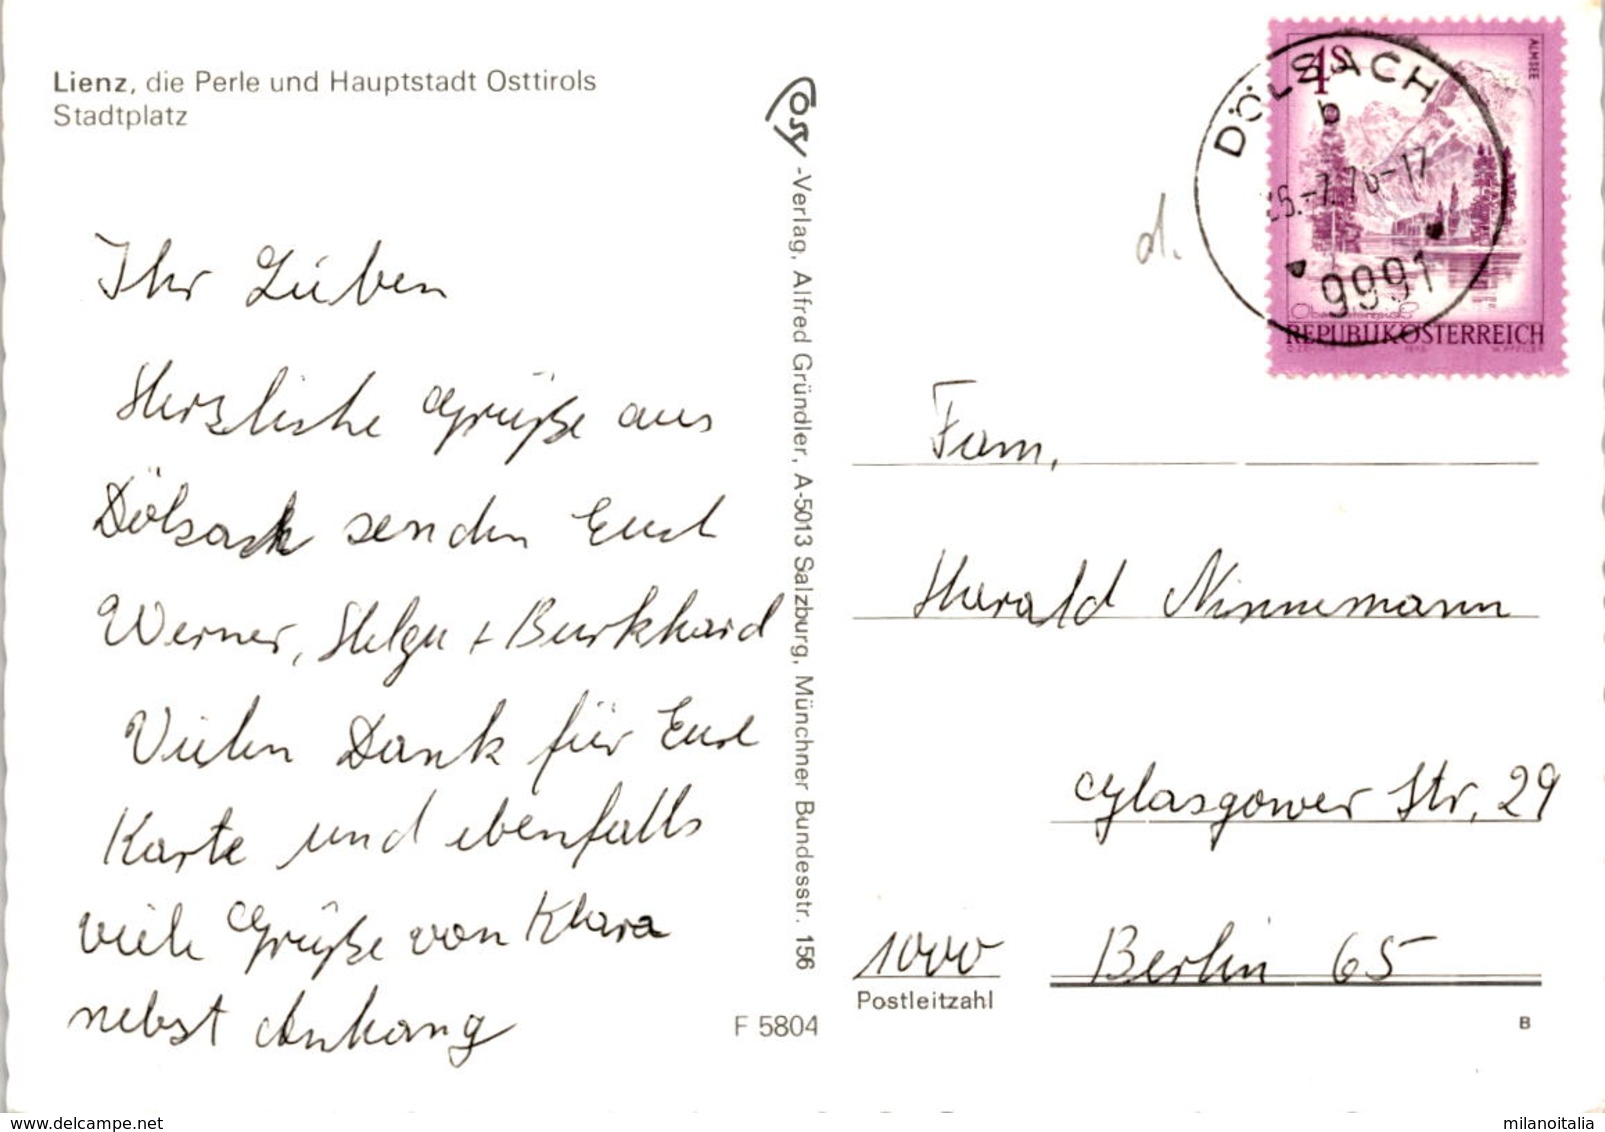 Lienz, die Perle und Hauptstadt Osttirols
Stadtplatz
Ihr Lieben
Herzliche Grüße aus
Dölsach senden Euch
Werner, Helga + Burkhard
Vielen Dank für Eure
Karte und ebenfalls
viele Grüße von Klara
nebst Anhang
F 5804
Ossy -Verlag, Alfred Gründler, A-5013 Salzburg, Münchner Bundesstr. 156
d.
4S
ALMSEE
DÖLSACH
b
-7.76-17
9991
Oberösterreich
REPUBLIK ÖSTERREICH
Fam,
Harald Ninnemann
Glasgower Str, 29
1000 Berlin 65
Postleitzahl
B
www.delcampe.net
milanoitalia